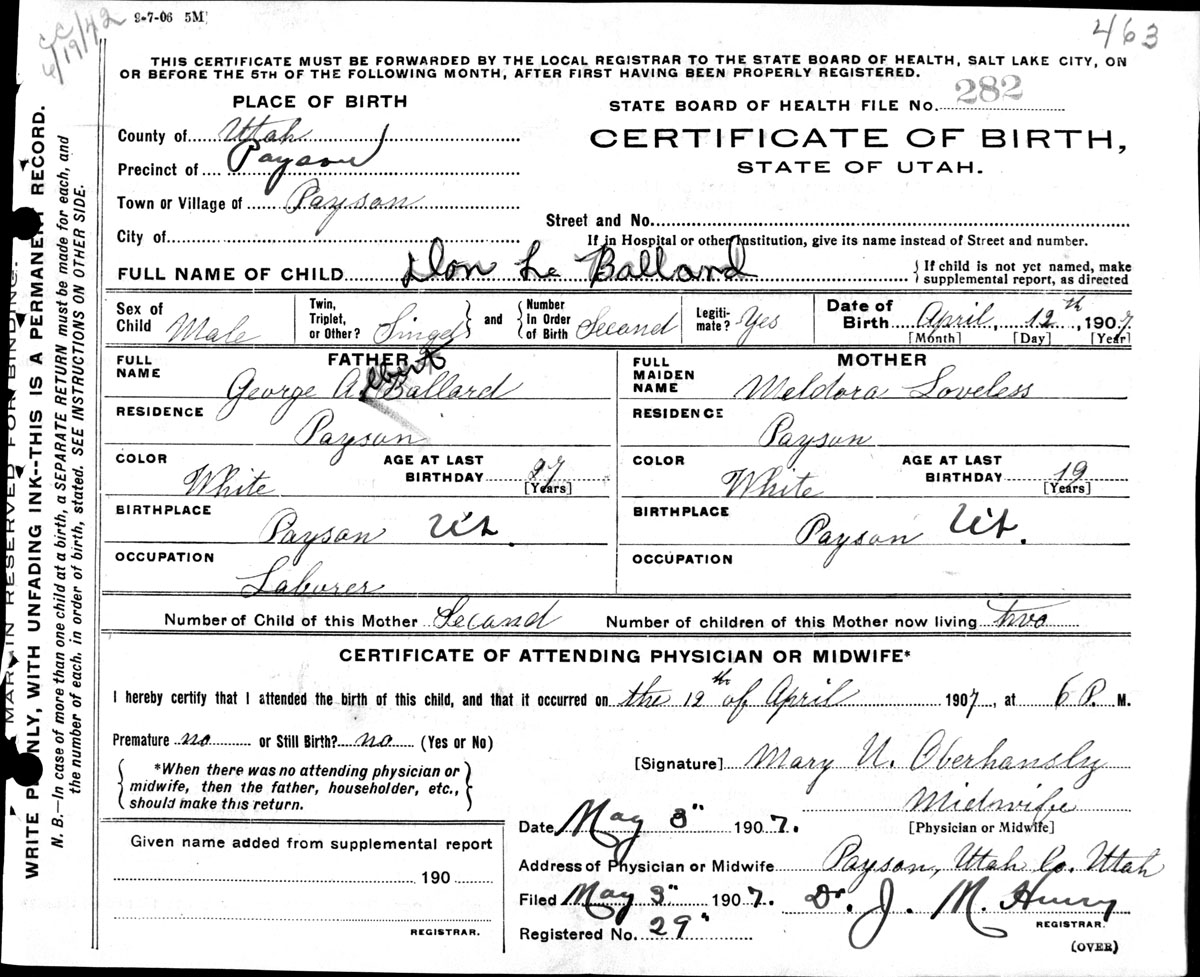 cc
6/19/42
9-7-06 5M
463
THIS CERTIFICATE MUST BE FORWARDED BY THE LOCAL REGISTRAR TO THE STATE BOARD OF HEALTH, SALT LAKE CITY, ON
OR BEFORE THE 5TH OF THE FOLLOWING MONTH, AFTER FIRST HAVING BEEN PROPERLY REGISTERED.
PLACE OF BIRTH
STATE BOARD OF HEALTH FILE No. 282
County of Utah
CERTIFICATE OF BIRTH,
Precinct of Payson
STATE OF UTAH.
Town or Village of Payson
Street and No.
City of
If in Hospital or other Institution, give its name instead of Street and number.
FULL NAME OF CHILD Don Le Ballard { If child is not yet named, make
supplemental report, as directed
Sex of Child Male
Twin, Triplet, or Other? Singel } and { Number In Order of Birth Second
Legiti- mate? Yes
Date of Birth April, 12th, 1907
[Month] [Day] [Year]
FATHER
MOTHER
FULL NAME George Albert Ballard
FULL MAIDEN NAME Meldora Loveless
RESIDENCE Payson
RESIDENCE Payson
COLOR White AGE AT LAST BIRTHDAY 27 [Years]
COLOR White AGE AT LAST BIRTHDAY 19 [Years]
BIRTHPLACE Payson Ut.
BIRTHPLACE Payson Ut.
OCCUPATION Laborer
OCCUPATION
Number of Child of this Mother Second Number of children of this Mother now living two
CERTIFICATE OF ATTENDING PHYSICIAN OR MIDWIFE*
I hereby certify that I attended the birth of this child, and that it occurred on the 12th of April 1907, at 6 P. M.
Premature no or Still Birth? no (Yes or No)
*When there was no attending physician or
midwife, then the father, householder, etc.,
should make this return.
[Signature] Mary U. Oberhansly
Midwife
[Physician or Midwife]
Date May 3" 1907.
Address of Physician or Midwife Payson, Utah Co. Utah
Filed May 3" 1907. Dr. J. M. Henry
REGISTRAR.
Registered No. 29"
(OVER)
Given name added from supplemental report
190
REGISTRAR.
MARGIN RESERVED FOR BINDING.
WRITE PLAINLY, WITH UNFADING INK--THIS IS A PERMANENT RECORD.
N. B.—In case of more than one child at a birth, a SEPARATE RETURN must be made for each, and
the number of each. in order of birth, stated. SEE INSTRUCTIONS ON OTHER SIDE.